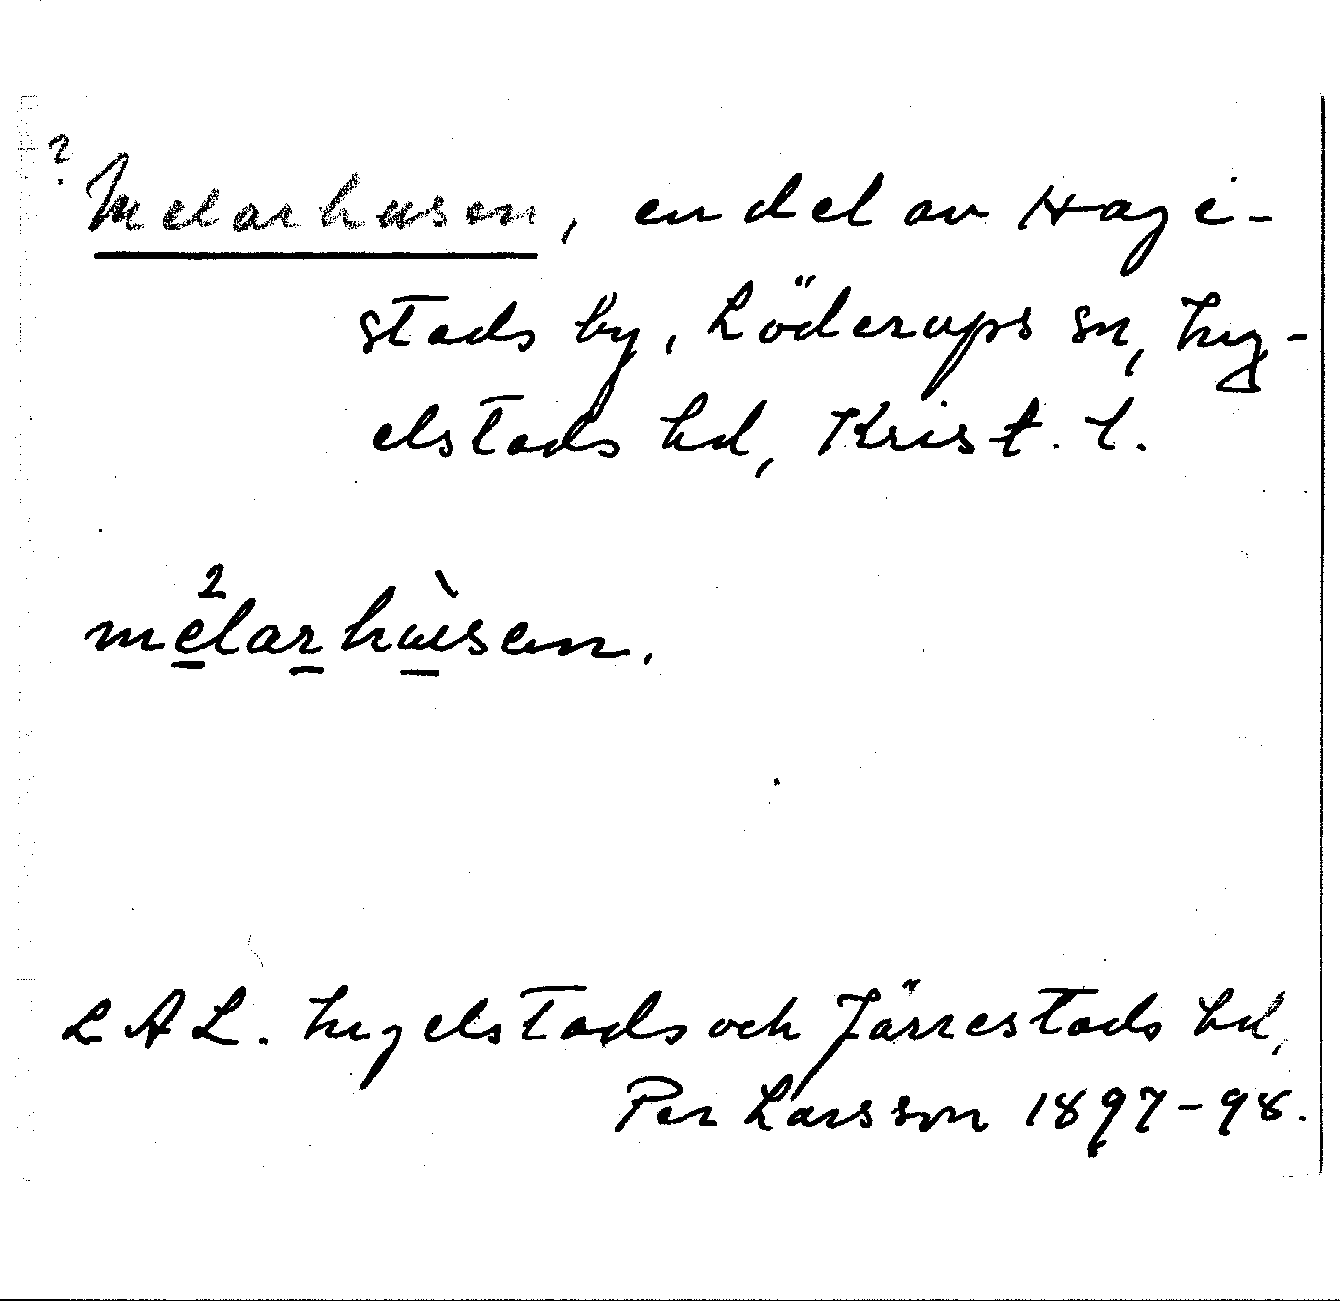 ? Melarhusen, en del av Hagi-
stads by, Löderups sn, Ing-
elstads hd, Krist. l.
me²larhùsen.
LAL. Ingelstads och Järrestads hd,
Per Larsson 1897-98.